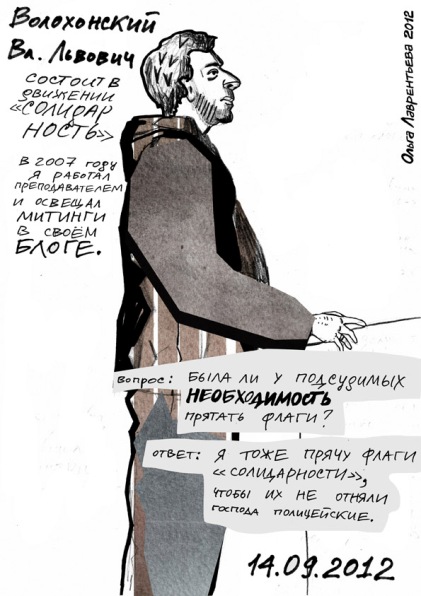 Волохонский
Вл. Львович
состоит в
движении
«СОЛИДАР
НОСТЬ»
В 2007 году
я работал
преподавателем
и освещал
митинги
в своём
БЛОГЕ.
Ольга Лаврентьева 2012
вопрос: была ли у подсудимых
НЕОБХОДИМОСТЬ
прятать флаги?
ответ: я тоже прячу флаги
«солидарности»,
чтобы их не отняли
господа полицейские.
14.09.2012